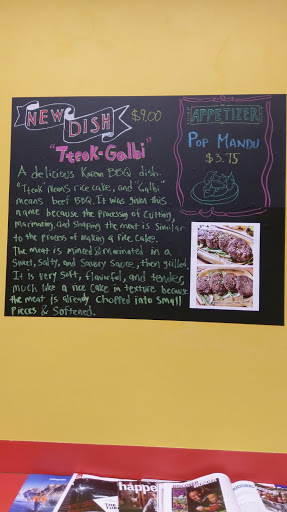 NEW DISH
$9.00
"Tteok-Galbi"
A delicious Korean BBQ dish.
"Tteok" means rice cake, and "Galbi"
means beef BBQ. It was given this
name because the processing of cutting,
marinating, and shaping the meat is similar
to the process of making a rice cake.
The meat is mined & marinated in a
sweet, salty, and savory sauce, then grilled.
It is very soft, flavorful, and tender,
much like a rice cake in texture because
the meat is already chopped into small
pieces & softened.
APPETIZER
POP MANDU
$3.75